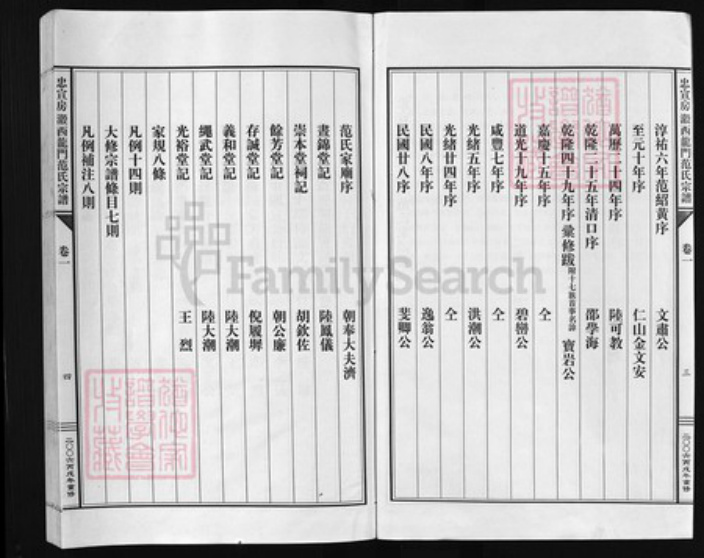 忠宣房澂西龍門范氏宗譜
卷一
三
二〇〇六丙戌年重修
淳祐六年范紹黃序 文肅公
至元十年序 仁山金文安
萬曆二十四年序 陸可教
乾隆二十五年清口序 邵學海
乾隆四十九年序 彙修跋 附十七族首事名諱 寶岩公
嘉慶十五年序 仝
道光十九年序 碧巒公
咸豐七年序 仝
光緒五年序 洪潮公
光緒廿四年序 仝
民國八年序 逸翁公
民國廿八序 斐卿公
范氏家廟序 朝奉大夫濟
晝錦堂記 陸鳳儀
崇本堂祠記 胡欽佐
餘芳堂記 朝公廉
存誠堂記 倪履墀
義和堂記 陸大潮
繩武堂記 陸大潮
光裕堂記 王烈
家規八條
凡例十四則
大修宗譜條目七則
凡例補注八則
忠宣房澂西龍門范氏宗譜
卷一
四
二〇〇六丙戌年重修
FamilySearch